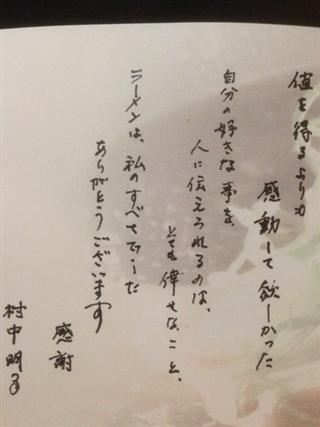 値を得るよりも
感動して欲しかった
自分の好きな事を、
人に伝えられるのは、
とても倖せなこと、
ラーメンは、私のすべてでした
ありがとうございます
感謝
村中明子